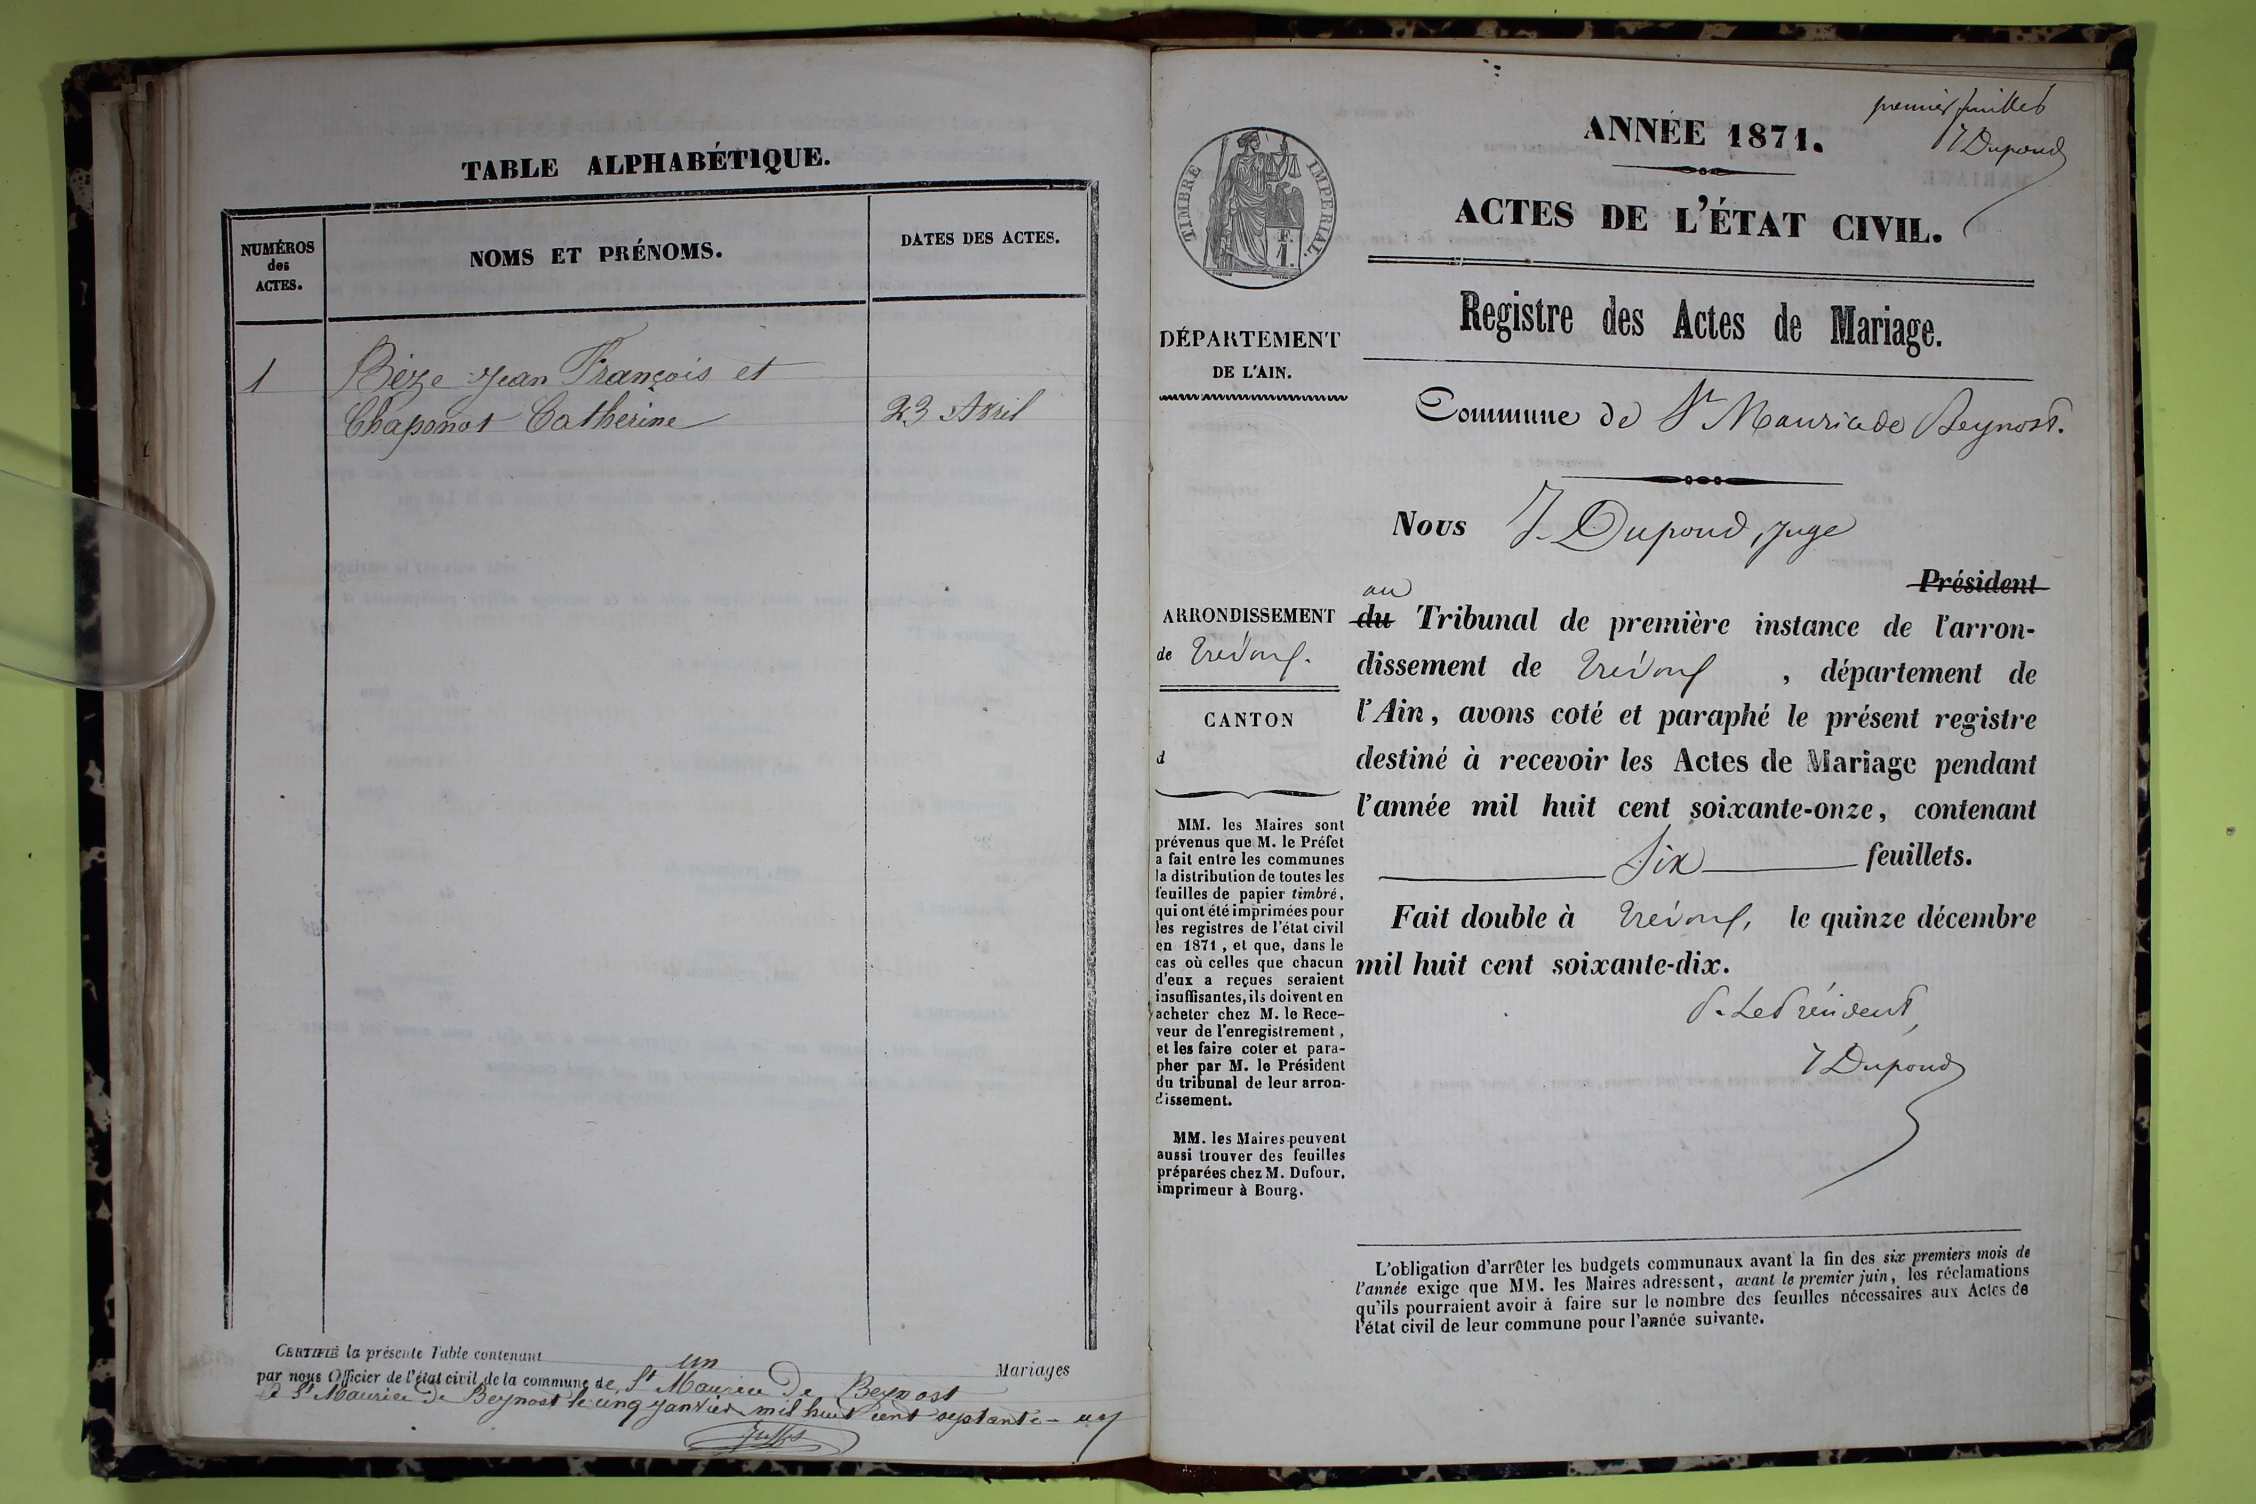 TABLE ALPHABÉTIQUE.
NUMÉROS
des
ACTES.
NOMS ET PRÉNOMS.
DATES DES ACTES.
1
Bèze Jean François et
Chaponot Catherine
23 Avril
CERTIFIÉ la présente Table contenant un Mariages
par nous Officier de l'état civil de la commune de St Maurice de Beynost
à St Maurice de Beynost le cinq Janvier mil huit cent septante-un
premier feuillet
J Dupond
TIMBRE IMPERIAL.
F.
1.
ANNÉE 1871.
ACTES DE L'ÉTAT CIVIL.
Registre des Actes de Mariage.
Commune de St Maurice de Beynost.
DÉPARTEMENT
DE L'AIN.
ARRONDISSEMENT
de Trévoux.
CANTON
d
MM. les Maires sont
prévenus que M. le Préfet
a fait entre les communes
la distribution de toutes les
feuilles de papier timbré,
qui ont été imprimées pour
les registres de l'état civil
en 1871, et que, dans le
cas où celles que chacun
d'eux a reçues seraient
insuffisantes, ils doivent en
acheter chez M. le Rece-
veur de l'enregistrement,
et les faire coter et para-
pher par M. le Président
du tribunal de leur arron-
dissement.
MM. les Maires peuvent
aussi trouver des feuilles
préparées chez M. Dufour,
imprimeur à Bourg.
Nous J. Dupond, Juge
Président
au
du Tribunal de première instance de l'arron-
dissement de Trévoux, département de
l'Ain, avons coté et paraphé le présent registre
destiné à recevoir les Actes de Mariage pendant
l'année mil huit cent soixante-onze, contenant
Six feuillets.
Fait double à Trévoux, le quinze décembre
mil huit cent soixante-dix.
P. Le Président,
J Dupond
L'obligation d'arrêter les budgets communaux avant la fin des six premiers mois de
l'année exige que MM. les Maires adressent, avant le premier juin, les réclamations
qu'ils pourraient avoir à faire sur le nombre des feuilles nécessaires aux Actes de
l'état civil de leur commune pour l'année suivante.